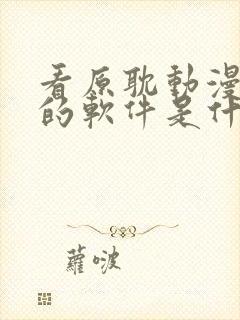 看原耽動漫
的軟件是什
蘿啵